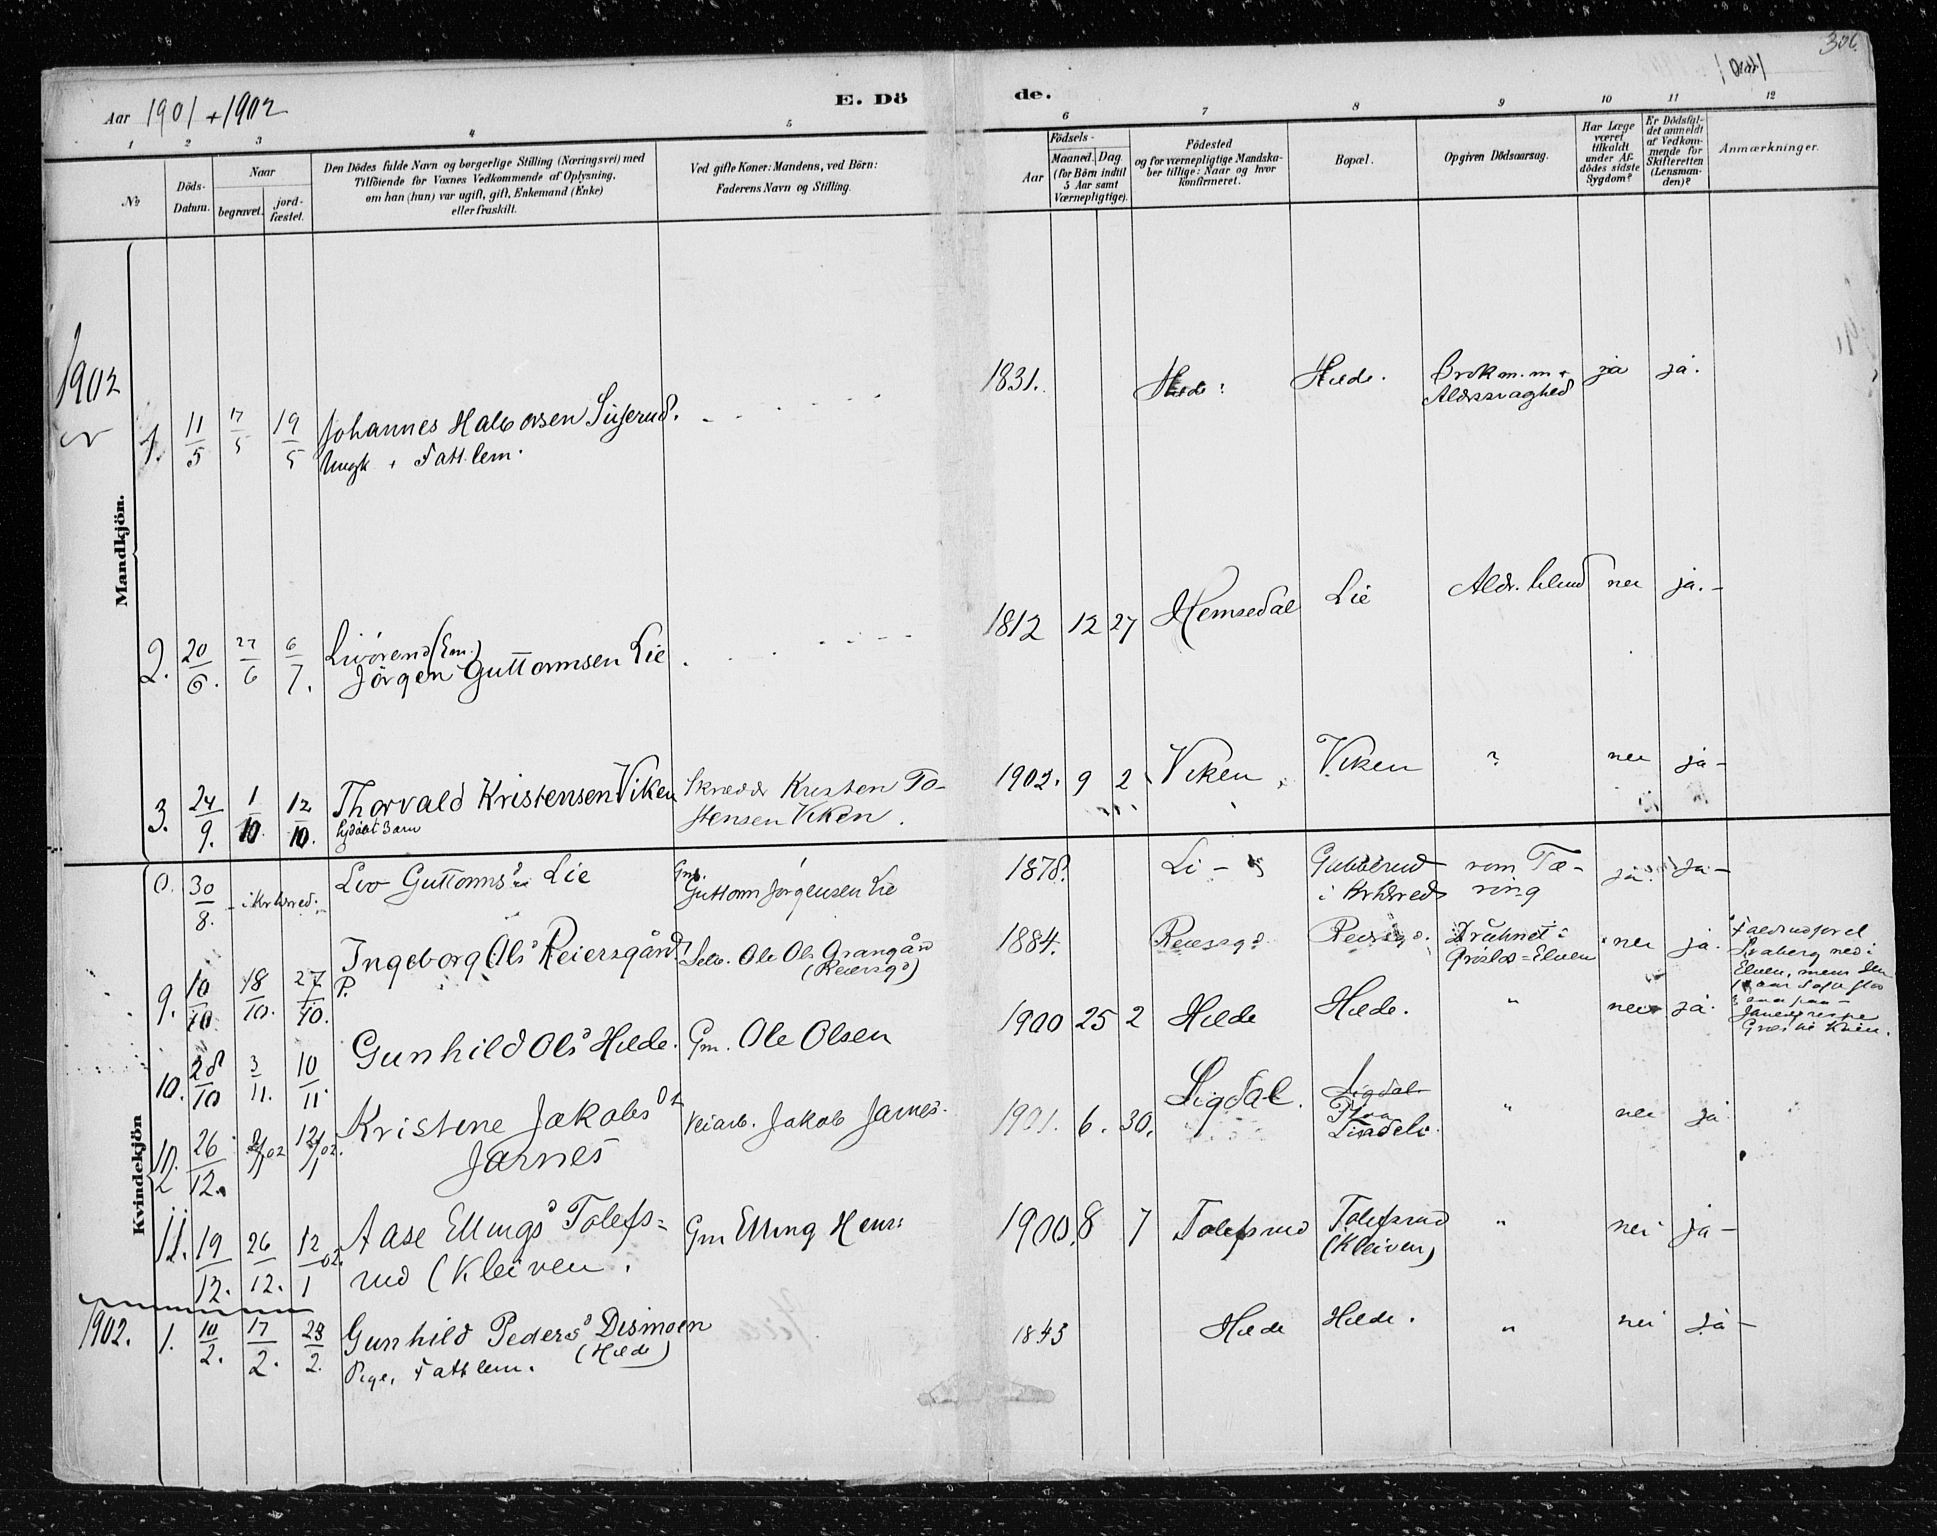 306.
Aar 1901 + 1902
E. Dö de.
1 2 3 4 5 6 7 8 9 10 11 12
No
Döds-
Datum.
Naar
begravet.
jord-
fæstet.
Den Dödes fulde Navn og borgerlige Stilling (Næringsvei) med
Tilföiende for Voxnes Vedkommende af Oplysning,
om han (hun) var ugift, gift, Enkemand (Enke)
eller fraskilt.
Ved gifte Koner: Mandens, ved Börn:
Faderens Navn og Stilling.
Födsels-
Aar
Maaned. Dag
(for Börn indtil
5 Aar samt
Værnepligtige).
Födested
og for værnepligtige Mandska-
ber tillige: Naar og hvor
konfirmeret.
Bopæl.
Opgiven Dödsaarsag.
Har Læge
været
tilkaldt
under Af-
dödes sidste
Sygdom?
Er Dödsfal-
det anmeldt
af Vedkom-
mende for
Skifteretten
(Lensman-
den)?
Anmærkninger.
Mandkjön.
1902
1. 11/5 17/5 19/5 Johannes Halvorsen
Ungk + Fatt.lem.
1831. Hilde. Brok m.m +
Alderssvaghed ja ja.
2. 20/6. 27/6 6/7. Livörend (Em.)
Jörgen Guttormsen Lie
1812 12 27 Hemsedal Lie nei ja. -
3. 24/9. 1/10. 12/10. Thorvald Kristensen Viken
Skrædder Kristen To-
stensen Viken.
1902. 9 2 Viken Viken ? nei ja -
Kvindekjön
0. 30/8. Liv Guttormsd. Lie
Gm.
Guttorm Jörgensen Lie
1878. Li - Gubberud
i Krhered Tæ-
ring ja. ja -
9. 10/10 18/10. 27/10. Ingeborg Olsd Reiersgård
P.
Selv. Ole Ols Grangård
(Reiersgd)
1884. Reiersgd Reiersgd. Druknet i
nei ja.
Elven, mens den
10. 28/10 3/11. 10/11. Gunhild Olsd Hilde. Gm. Ole Olsen
1900 25 2 Hilde Hilde. " nei ja.
10. 2 26/12. Kristine Jakobsdt
Jarnes
Veiarb. Jakob Jarnes.
1901. 6. 30. Sigdal. Sigdal
Lindeli. " nei ja
11. 19/12. 26/12. 12/1 02. Aase Ellingsd Tolefs=
rud (Kleiven.
Gm Elling Hens:
1900. 8 7 Tolefsrud Tolefsrud
(Kleiven) " nei ja -
1902. 1. 10/2. 17/2. 23/2. Gunhild Pedersd Dismoen
(Hilde)
Pige, Fattlem.
1843 Hilde Hilde. " nei ja -